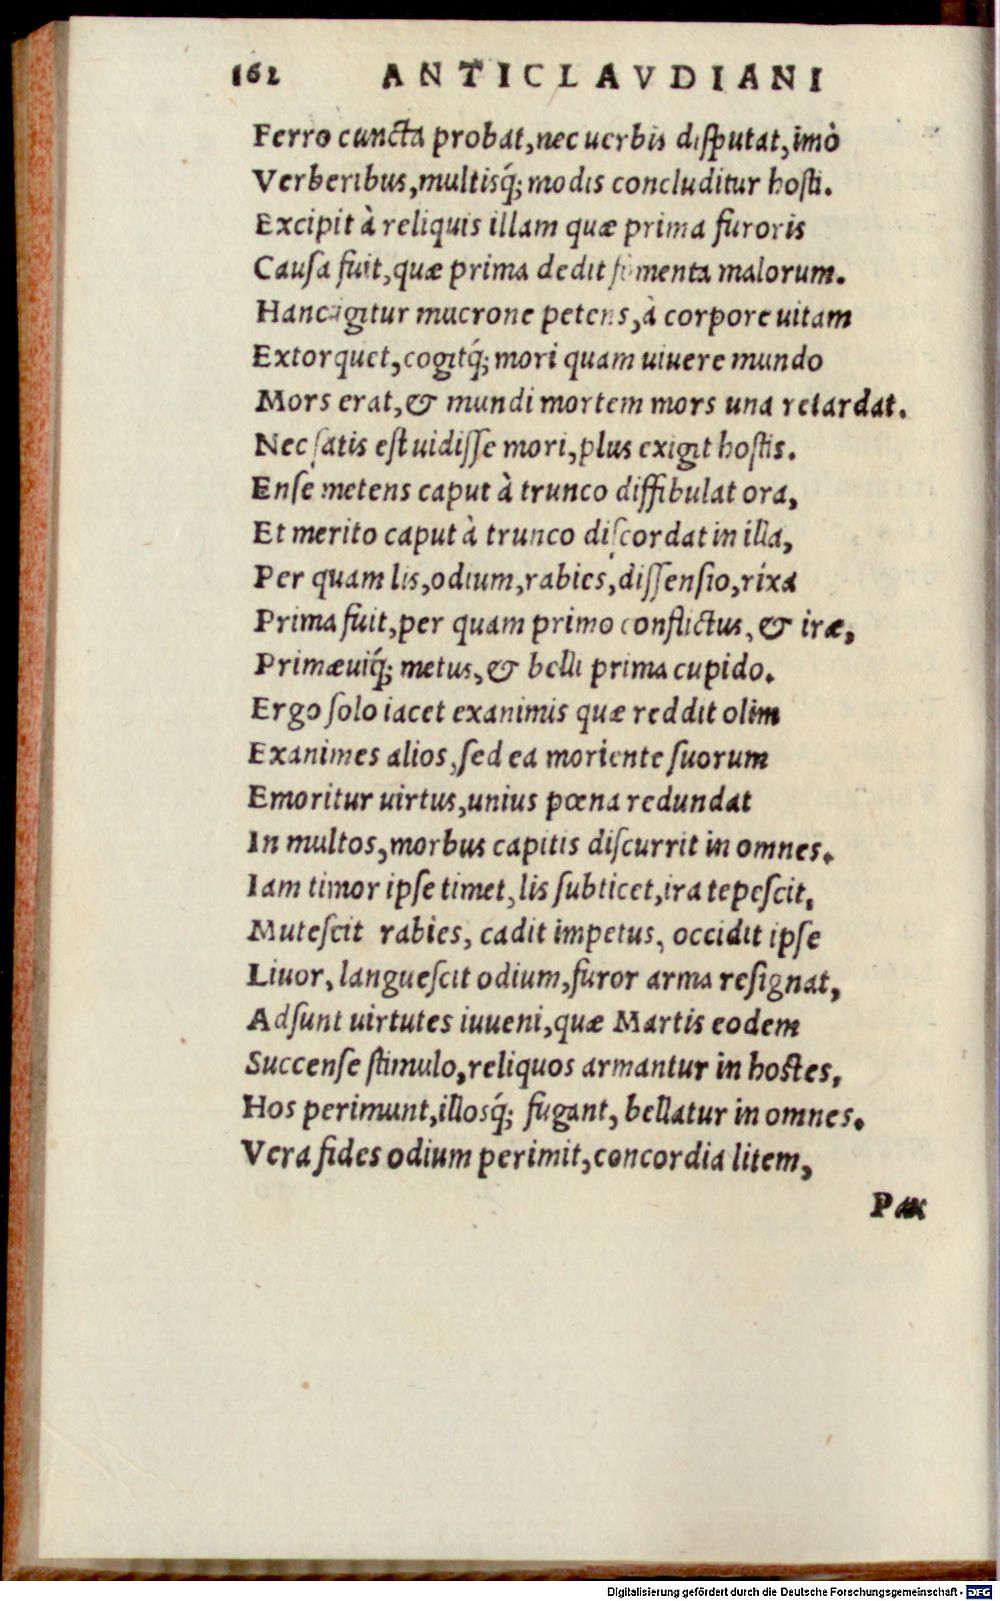 162 ANTICLAVDIANI
Ferro cuncta probat, nec uerbis diſputat, imò
Verberibus, multisq́; modis concluditur hoſti.
Excipit à reliquis illam quæ prima furoris
Cauſa fuit, quæ prima dedit fomenta malorum.
Hanc igitur mucrone petens, à corpore uitam
Extorquet, cogitq́; mori quam uiuere mundo
Mors erat, & mundi mortem mors una retardat.
Nec ſatis eſt uidiſſe mori, plus exigit hoſtis.
Enſe metens caput à trunco diffibulat ora,
Et merito caput à trunco diſcordat in illa,
Per quam lis, odium, rabies, diſſenſio, rixa
Prima fuit, per quam primo conflictus, & iræ,
Primæuiq́; metus, & belli prima cupido.
Ergo ſolo iacet exanimis quæ reddit olim
Exanimes alios, ſed ea moriente ſuorum
Emoritur uirtus, unius pœna redundat
In multos, morbus capitis diſcurrit in omnes.
Iam timor ipſe timet, lis ſubticet, ira tepeſcit,
Muteſcit rabies, cadit impetus, occidit ipſe
Liuor, langueſcit odium, furor arma reſignat,
Adſunt uirtutes iuueni, quæ Martis eodem
Succenſe ſtimulo, reliquos armantur in hoſtes,
Hos perimunt, illosq́; fugant, bellatur in omnes.
Vera fides odium perimit, concordia litem,
Pax
Digitalisierung gefördert durch die Deutsche Forschungsgemeinschaft - DFG